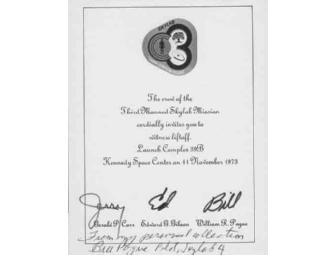 SKYLAB
The crew of the
Third Manned Skylab Mission
cordially invites you to
witness liftoff.
Launch Complex 39B
Kennedy Space Center on 11 November 1973
Jerry Ed Bill
Gerald P. Carr Edward G. Gibson William R. Pogue
From my personal collection
Bill Pogue Plt, Skylab 4